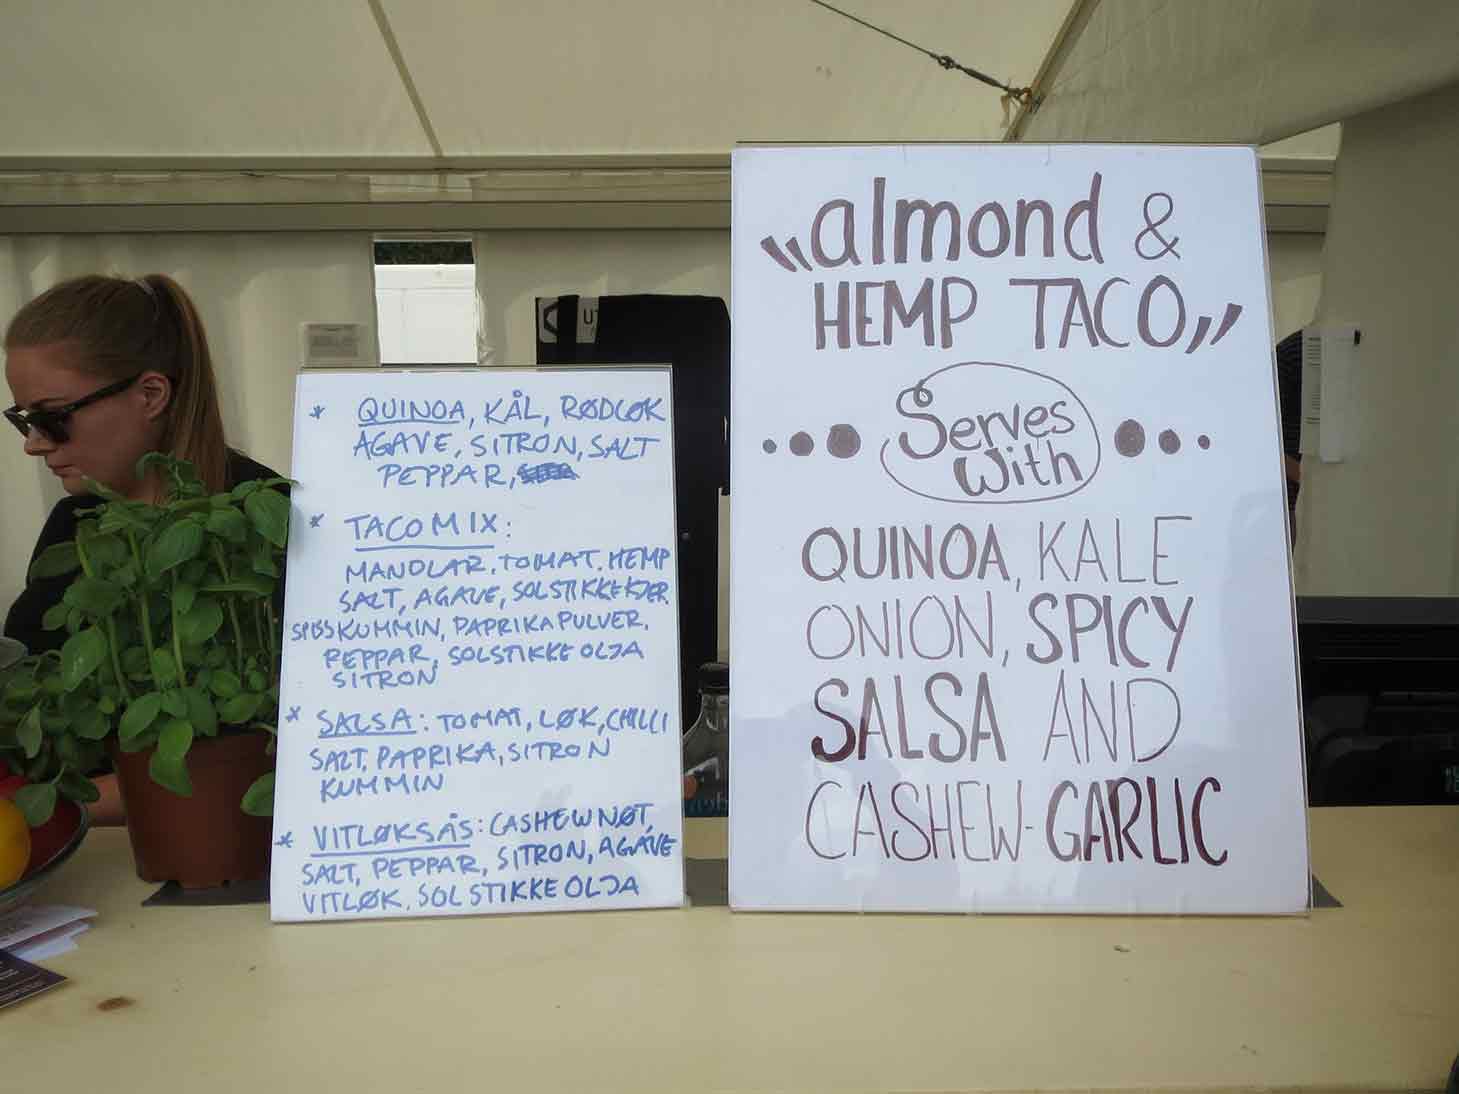 * QUINOA, KÅL, RØDLØK
AGAVE, SITRON, SALT
PEPPAR,
* TACOMIX:
MANDLAR, TOMAT, HEMP
SALT, AGAVE, SOLSTIKKEKJER
SPISSKUMMIN, PAPRIKAPULVER,
PEPPAR, SOLSTIKKE OLJA
SITRON
* SALSA: TOMAT, LØK, CHILLI
SALT, PAPRIKA, SITRON
KUMMIN
* VITLØKSÅS: CASHEWNØT,
SALT, PEPPAR, SITRON, AGAVE
VITLØK, SOLSTIKKE OLJA
"almond &
HEMP TACO"
Serves
With
QUINOA, KALE
ONION, SPICY
SALSA AND
CASHEW-GARLIC